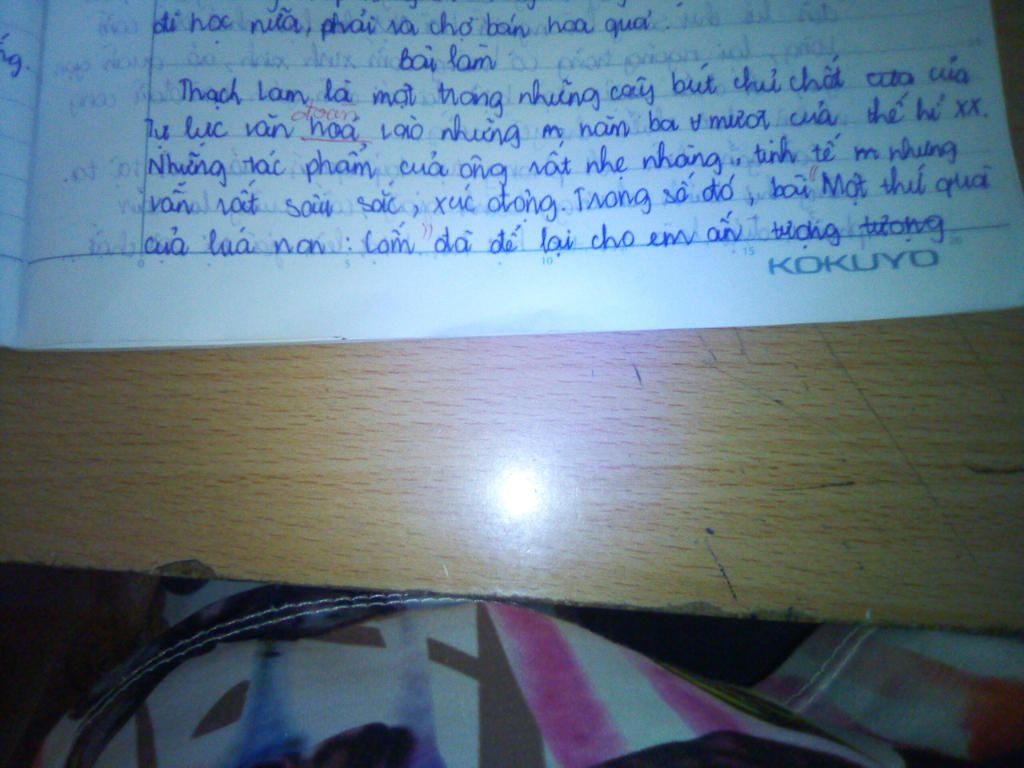 ng.
đi học nữa, phải ra chợ bán hoa quả.
Bài làm
Thạch Lam là một trong những cây bút chủ chốt của của
đoàn
Tự lực văn hoá vào những m năm ba v mươi của thế hỉ XX.
Những tác phẩm của ông rất nhẹ nhàng, tinh tế m nhưng
vẫn rất sâu sắc, xúc động. Trong số đó, bài "Một thứ quà
của luá non: Cốm" đã để lại cho em ấn tượng tượng
0 5 10 15 20
KOKUYO